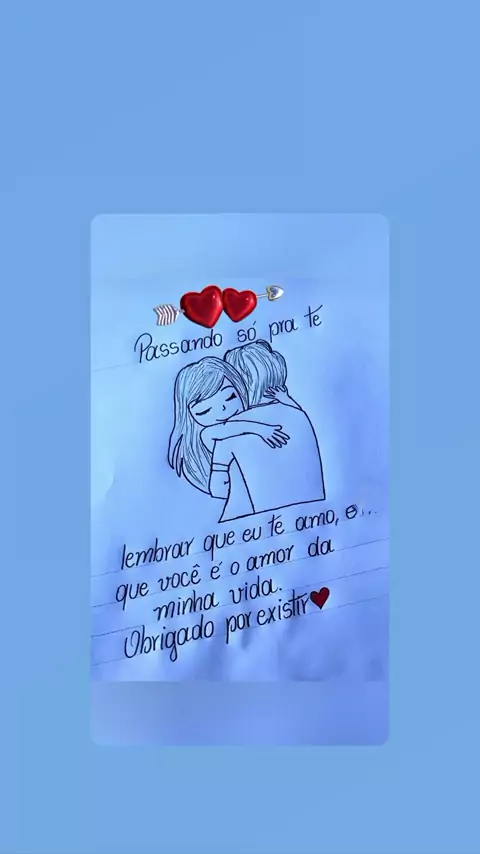 Passando só pra te
lembrar que eu te amo, e...
que você é o amor da
minha vida.
Obrigado por existir